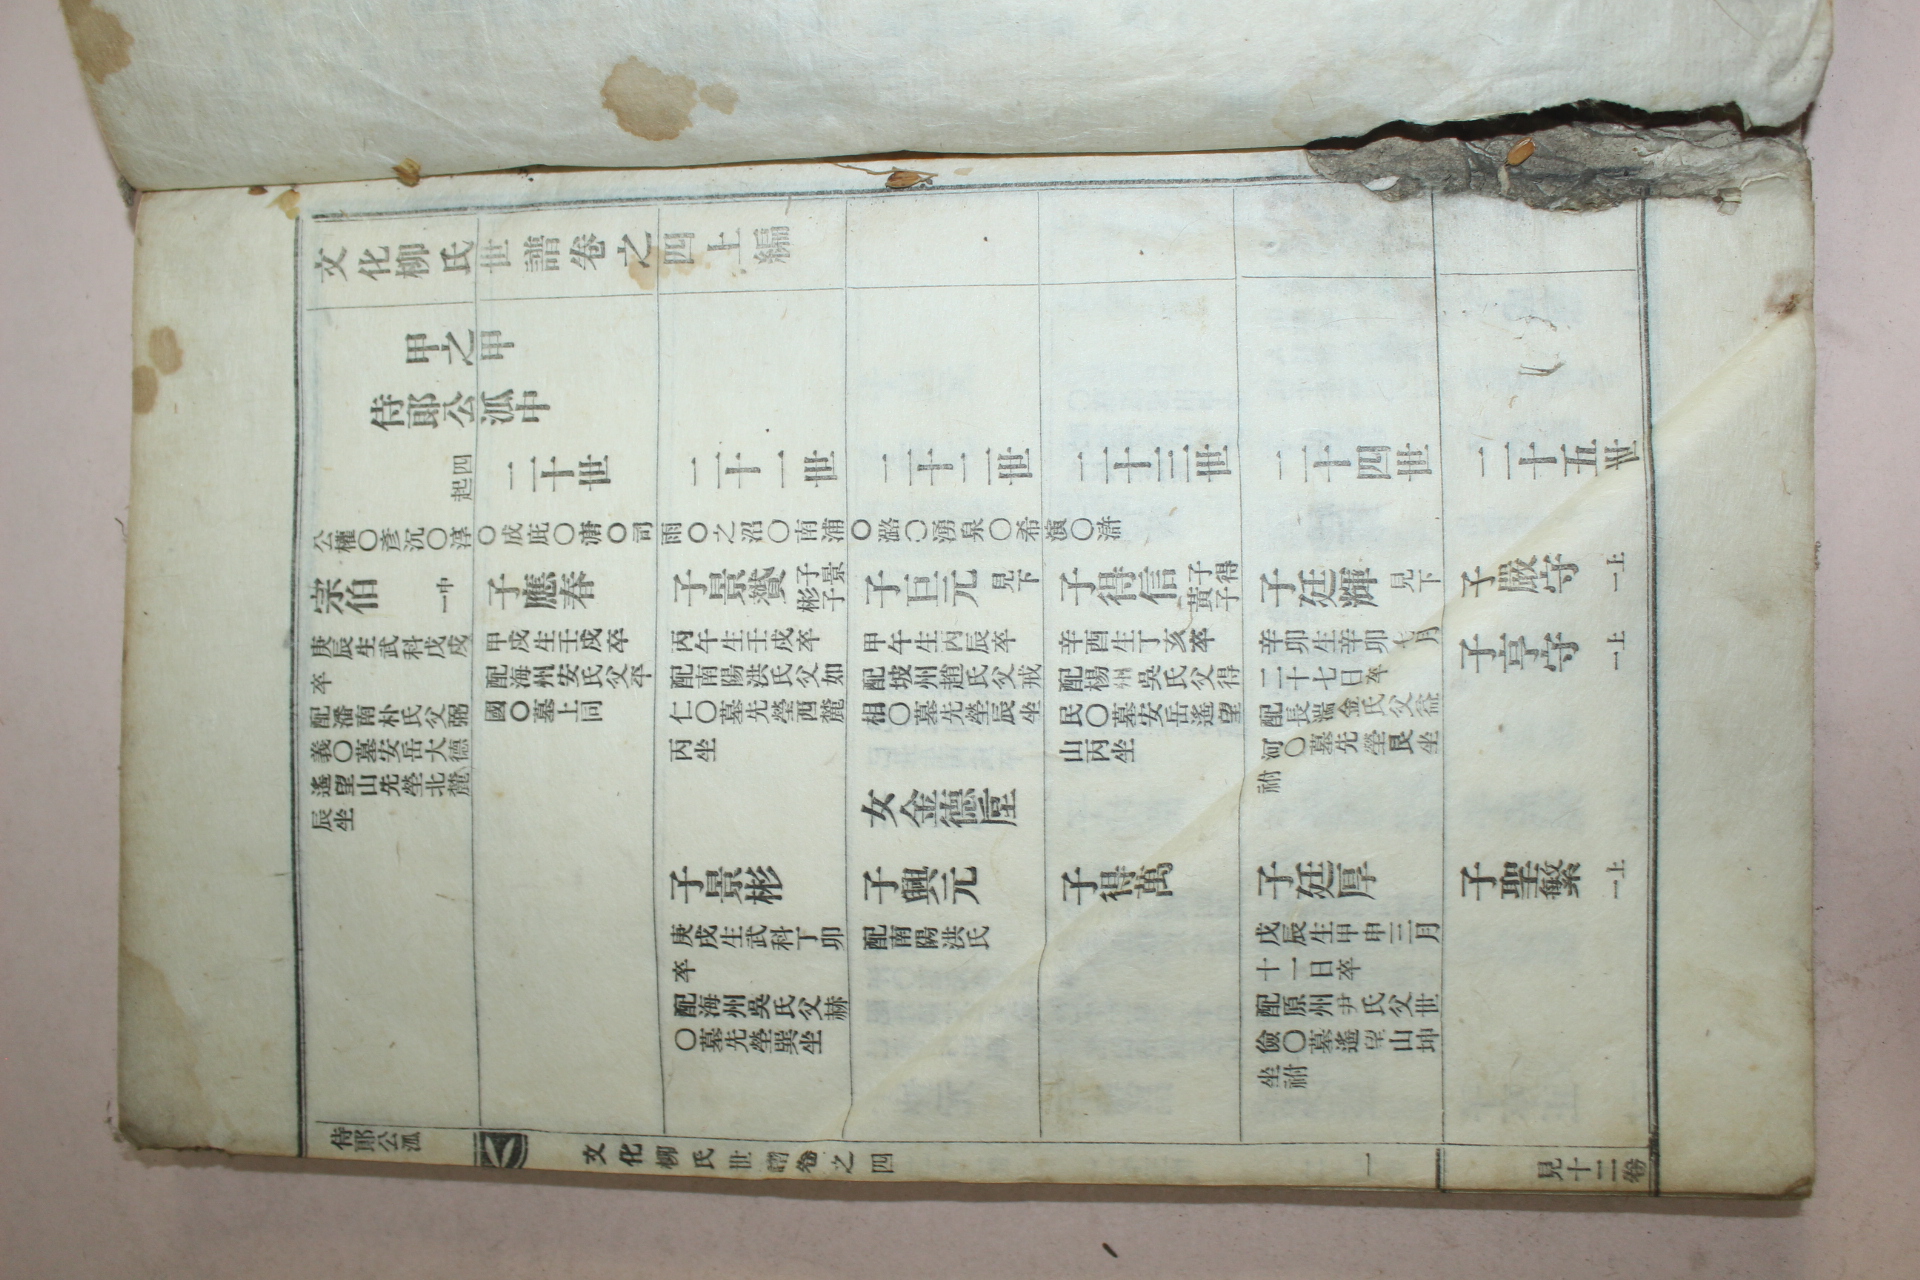 文化柳氏世譜卷之四上編
甲之甲
侍郞公派中
四起
二十世
二十一世
二十二世
二十三世
二十四世
二十五世
公權〇彥沉〇淳〇成庇〇溏〇司雨〇之沼〇南浦〇潞〇湧泉〇希演〇滸
宗伯
中一
庚辰生武科戊戌
卒
配潘南朴氏父弼
義〇墓安岳大德
遙望山先塋北麓
辰坐
子應春
甲戌生壬戌卒
配海州安氏父平
國〇墓上同
子景贊
子景
彬子
丙午生壬戌卒
配南陽洪氏父如
仁〇墓先塋西麓
丙坐
子景彬
庚戌生武科丁卯
卒
配海州吳氏父赫
〇墓先塋巽坐
子巨元
見下
甲午生丙辰卒
配坡州趙氏父戒
相〇墓先塋辰坐
女金德垕
子興元
配南陽洪氏
子得信
子得
黃子
辛酉生丁亥卒
配楊州吳氏父得
民〇墓安岳遙望
山丙坐
子得萬
子廷輝
見下
辛卯生辛卯七月
二十七日卒
配長湍金氏父益
河〇墓先塋艮坐
祔
子廷厚
戊辰生甲申三月
十一日卒
配原州尹氏父世
儉〇墓遙望山坤
坐祔
子嚴守
上一
子亨守
上一
子聖繁
上一
侍郞公派
文化柳氏世譜卷之四
一
見十二卷